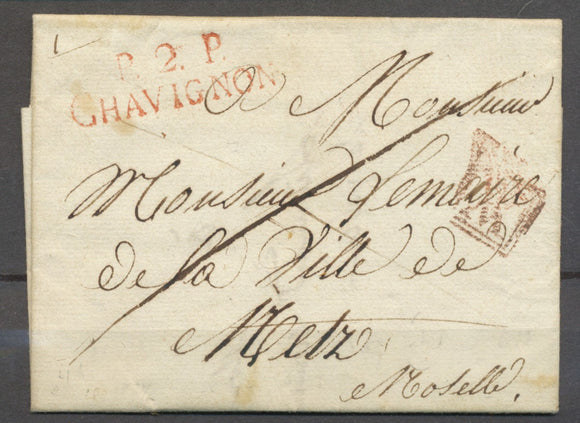 P. 2. P.
CHAVIGNON
A Monsieur
Monsieur Lemaire
de la Ville de
Metz
Moselle.